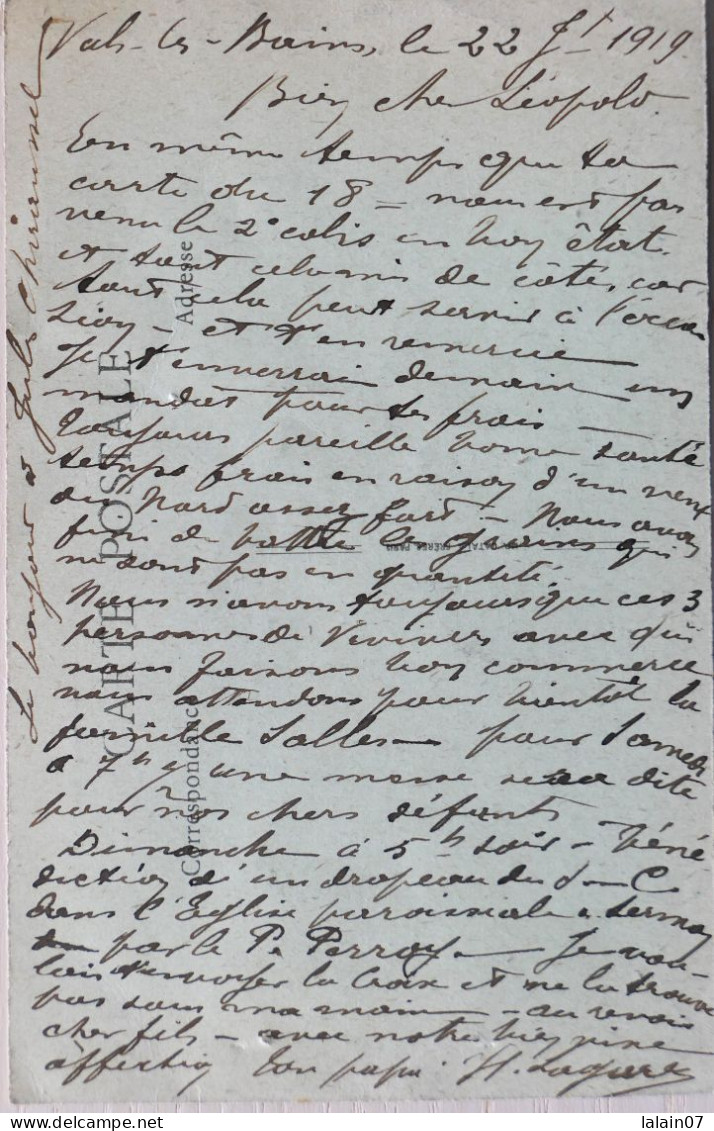 Vals-les-Bains, le 22 Jt 1919
Bien cher Léopold.
En même temps que ta
carte du 18 = nous est par
venu le 2e colis en bon état.
et tout cela mis de côté, car
tout cela peut servir à l'occa
sion - et t'en remercie
Je t'enverrai demain un
mandat pour tes frais -
Toujours pareille bonne santé
temps frais en raison d'un vent
du Nord assez fort - Nous avons
fini de battre les grains qui
ne sont pas en quantité.
Nous n'avons toujours que ces 3
personnes de Viviers avec qui
nous faisons bon commerce
nous attendons pour bientôt la
famille Salles - pour Samedi
à 7h y une messe sera dite
pour nos chers défunts
Dimanche à 5h soir - Béné
diction d'un drapeau du S - C
dans l'Eglise paroissiale & sermon
par le P. Perroy - Je vou-
lais t'envoyer la Croix et ne la trouve
pas sous ma main - au revoir
cher fils - avec notre bien vive
affection ton papa
Le bonjour à Jules
CARTE POSTALE
Correspondance
Adresse
FRÈRES PARIS
lalain07